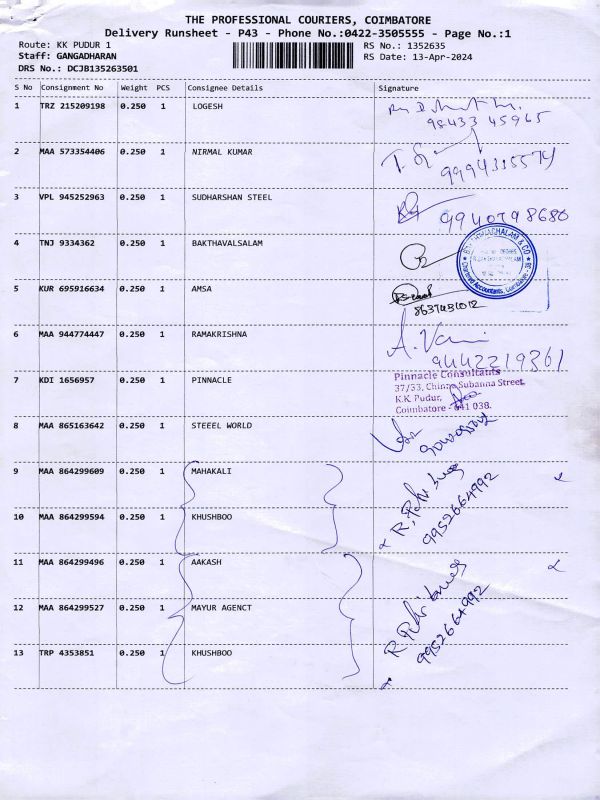 THE PROFESSIONAL COURIERS, COIMBATORE
Delivery Runsheet - P43 - Phone No.:0422-3505555 - Page No.:1
Route: KK PUDUR 1 RS No.: 1352635
Staff: GANGADHARAN RS Date: 13-Apr-2024
DRS No.: DCJB135263501
S No Consignment No Weight PCS Consignee Details Signature
1 TRZ 215209198 0.250 1 LOGESH
98433 45965
2 MAA 573354406 0.250 1 NIRMAL KUMAR
9994315574
3 VPL 945252963 0.250 1 SUDHARSHAN STEEL
9940798680
4 TNJ 9334362 0.250 1 BAKTHAVALSALAM
Chartered Accountants, Coimbatore - 38
5 KUR 695916634 0.250 1 AMSA
8637431012
6 MAA 944774447 0.250 1 RAMAKRISHNA
9442219361
7 KDI 1656957 0.250 1 PINNACLE
Pinnacle Consultants
37/33, Chinna Subanna Street,
K.K Pudur,
Coimbatore - 641 038.
8 MAA 865163642 0.250 1 STEEEL WORLD
9 MAA 864299609 0.250 1 MAHAKALI
10 MAA 864299594 0.250 1 KHUSHBOO
9952664992
11 MAA 864299496 0.250 1 AAKASH
12 MAA 864299527 0.250 1 MAYUR AGENCT
9952664992
13 TRP 4353851 0.250 1 KHUSHBOO